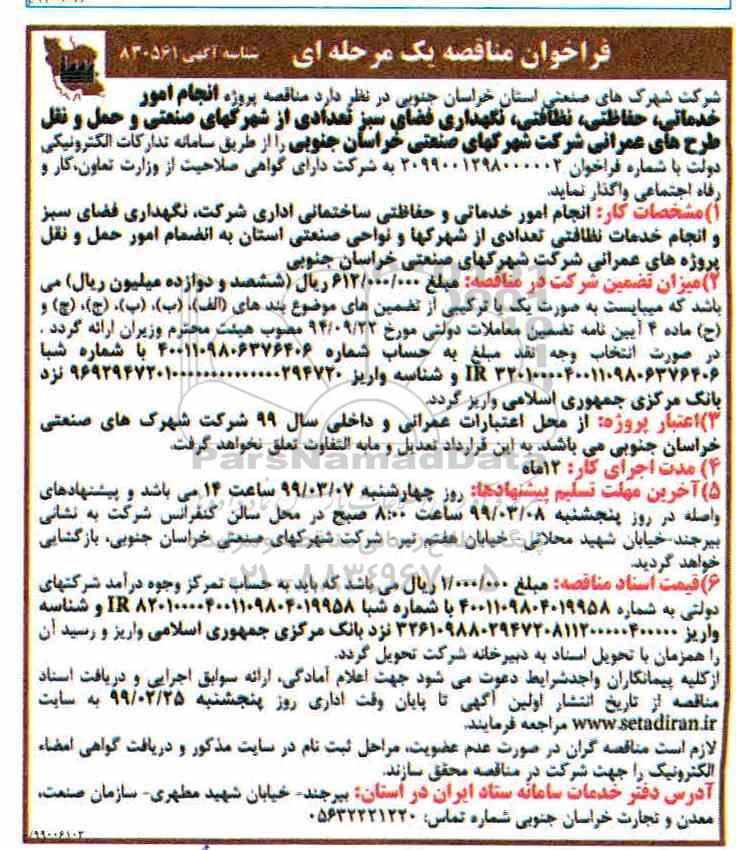 فراخوان مناقصه یک مرحله ای شناسه آگهی ۸۳۰۵۶۱
شرکت شهرک های صنعتی استان خراسان جنوبی در نظر دارد مناقصه پروژه انجام امور
خدماتی، حفاظتی، نظافتی، نگهداری فضای سبز تعدادی از شهرکهای صنعتی و حمل و نقل
طرح های عمرانی شرکت شهرکهای صنعتی خراسان جنوبی را از طریق سامانه تدارکات الکترونیکی
دولت با شماره فراخوان ۲۰۹۹۰۰۱۲۹۸۰۰۰۰۰۲ به شرکت دارای گواهی صلاحیت از وزارت تعاون،کار و
رفاه اجتماعی واگذار نماید.
۱)مشخصات کار: انجام امور خدماتی و حفاظتی ساختمانی اداری شرکت، نگهداری فضای سبز
و انجام خدمات نظافتی تعدادی از شهرکها و نواحی صنعتی استان به انضمام امور حمل و نقل
پروژه های عمرانی شرکت شهرکهای صنعتی خراسان جنوبی
۲)میزان تضمین شرکت در مناقصه: مبلغ ۶۱۲/۰۰۰/۰۰۰ ریال (ششصد و دوازده میلیون ریال) می
باشد که میبایست به صورت یک یا ترکیبی از تضمین های موضوع بند های (الف)، (ب)، (پ)، (ج)، (چ) و
(ح) ماده ۴ آیین نامه تضمین معاملات دولتی مورخ ۹۴/۰۹/۲۲ مصوب هیئت محترم وزیران ارائه گردد .
در صورت انتخاب وجه نقد مبلغ به حساب شماره ۴۰۰۱۱۰۹۸۰۶۳۷۶۴۰۶ با شماره شبا
IR ۳۲۰۱۰۰۰۰۴۰۰۱۱۰۹۸۰۶۳۷۶۴۰۶ و شناسه واریز نزد
بانک مرکزی جمهوری اسلامی واریز گردد.
۳)اعتبار پروژه: از محل اعتبارات عمرانی و داخلی سال ۹۹ شرکت شهرک های صنعتی
خراسان جنوبی می باشد. به این قرارداد تعدیل و مابه التفاوت تعلق نخواهد گرفت.
۴) مدت اجرای کار: ۱۲ماه
۵)آخرین مهلت تسلیم پیشنهادها: روز چهارشنبه ۹۹/۰۳/۰۷ ساعت ۱۴ می باشد و پیشنهادهای
واصله در روز پنجشنبه ۹۹/۰۳/۰۸ ساعت ۸:۰۰ صبح در محل سالن کنفرانس شرکت به نشانی
بیرجند-خیابان شهید محلاتی -خیابان هفتم تیر- شرکت شهرکهای صنعتی خراسان جنوبی، بازگشایی
خواهد گردید.
۶)قیمت اسناد مناقصه: مبلغ ۱/۰۰۰/۰۰۰ ریال می باشد که باید به حساب تمرکز وجوه درآمد شرکتهای
دولتی به شماره ۴۰۰۱۱۰۹۸۰۴۰۱۹۹۵۸ با شماره شبا IR ۸۲۰۱۰۰۰۰۴۰۰۱۱۰۹۸۰۴۰۱۹۹۵۸ و شناسه
واریز نزد بانک مرکزی جمهوری اسلامی واریز و رسید آن
را همزمان با تحویل اسناد به دبیرخانه شرکت تحویل گردد.
ازکلیه پیمانکاران واجدشرایط دعوت می شود جهت اعلام آمادگی، ارائه سوابق اجرایی و دریافت اسناد
مناقصه از تاریخ انتشار اولین آگهی تا پایان وقت اداری روز پنجشنبه ۹۹/۰۲/۲۵ به سایت
www.setadiran.ir مراجعه فرمایند.
لازم است مناقصه گران در صورت عدم عضویت، مراحل ثبت نام در سایت مذکور و دریافت گواهی امضاء
الکترونیک را جهت شرکت در مناقصه محقق سازند.
آدرس دفتر خدمات سامانه ستاد ایران در استان: بیرجند- خیابان شهید مطهری- سازمان صنعت،
معدن و تجارت خراسان جنوبی شماره تماس: ۰۵۶۳۲۲۲۱۲۲۰
۹۹۰۰۶۱۰۲/
ParsNamadData
۰۲۱-۸۸۳۴۹۶۷۰-۵